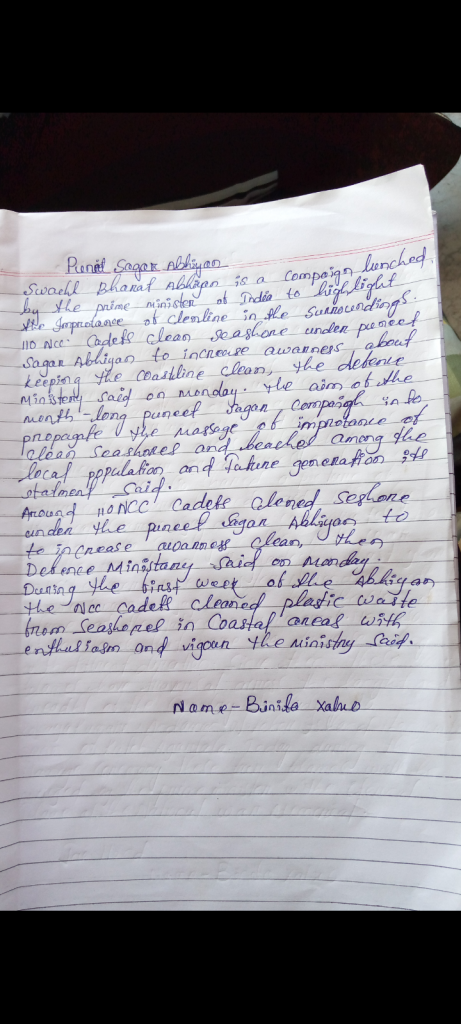 Puneet Sagar Abhiyan
Swachh Bharat Abhiyan is a compaign lunched
by the prime minister of India to highlight
the Improtance of clenline in the surroundings.
110 Ncc Cadets clean seashore under puneet
Sagar Abhiyan to increase awarness about
keeping the coastline clean, the defence
Ministery said on monday. The aim of the
month-long puneet Sagar compaigh is to
propagate the massage of improtance of
clean seashores and beaches among the
local population and Future generation its
statment said.
Around 110 NCC cadets clened seshore
under the puneet Sagar Abhiyan to
to increase awarness clean, then
Defence Ministary said on monday.
During the first week of the Abhiyan
the Ncc cadets cleaned plastic waste
from seashores in Coastal areas with
enthusiasm and vigour the ministry said.
Name - Binita Xalxo